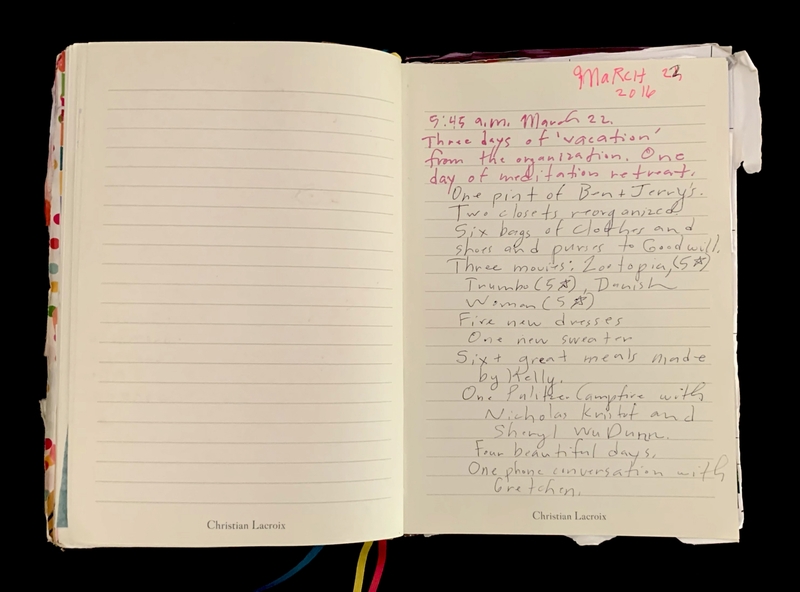 Christian Lacroix
MARCH 22
2016
5:45 a.m. March 22.
Three days of 'vacation'
from the organization. One
day of meditation retreat.
One pint of Ben + Jerry's.
Two closets reorganized
Six bags of clothes and
shoes and purses to Goodwill.
Three movies: Zootopia, (5☆)
Trumbo (5☆), Danish
Woman (5☆)
Five new dresses
One new sweater
Six + great meals made
by Kelly.
One Pulitzer Campfire with
Nicholas Kristof and
Sheryl WuDunn.
Four beautiful days.
One phone conversation with
Gretchen.
Christian Lacroix